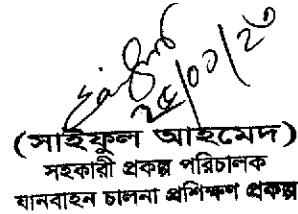 (সাইফুল আহমেদ)
সহকারী প্রকল্প পরিচালক
যানবাহন চালনা প্রশিক্ষণ প্রকল্প